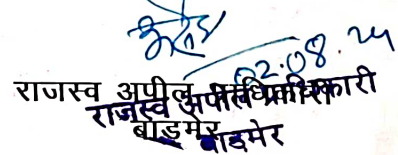 02.08.24
राजस्व अपील प्राधिकारी
राजस्व अपील प्राधिकारी
बाड़मेर
बाडमेर